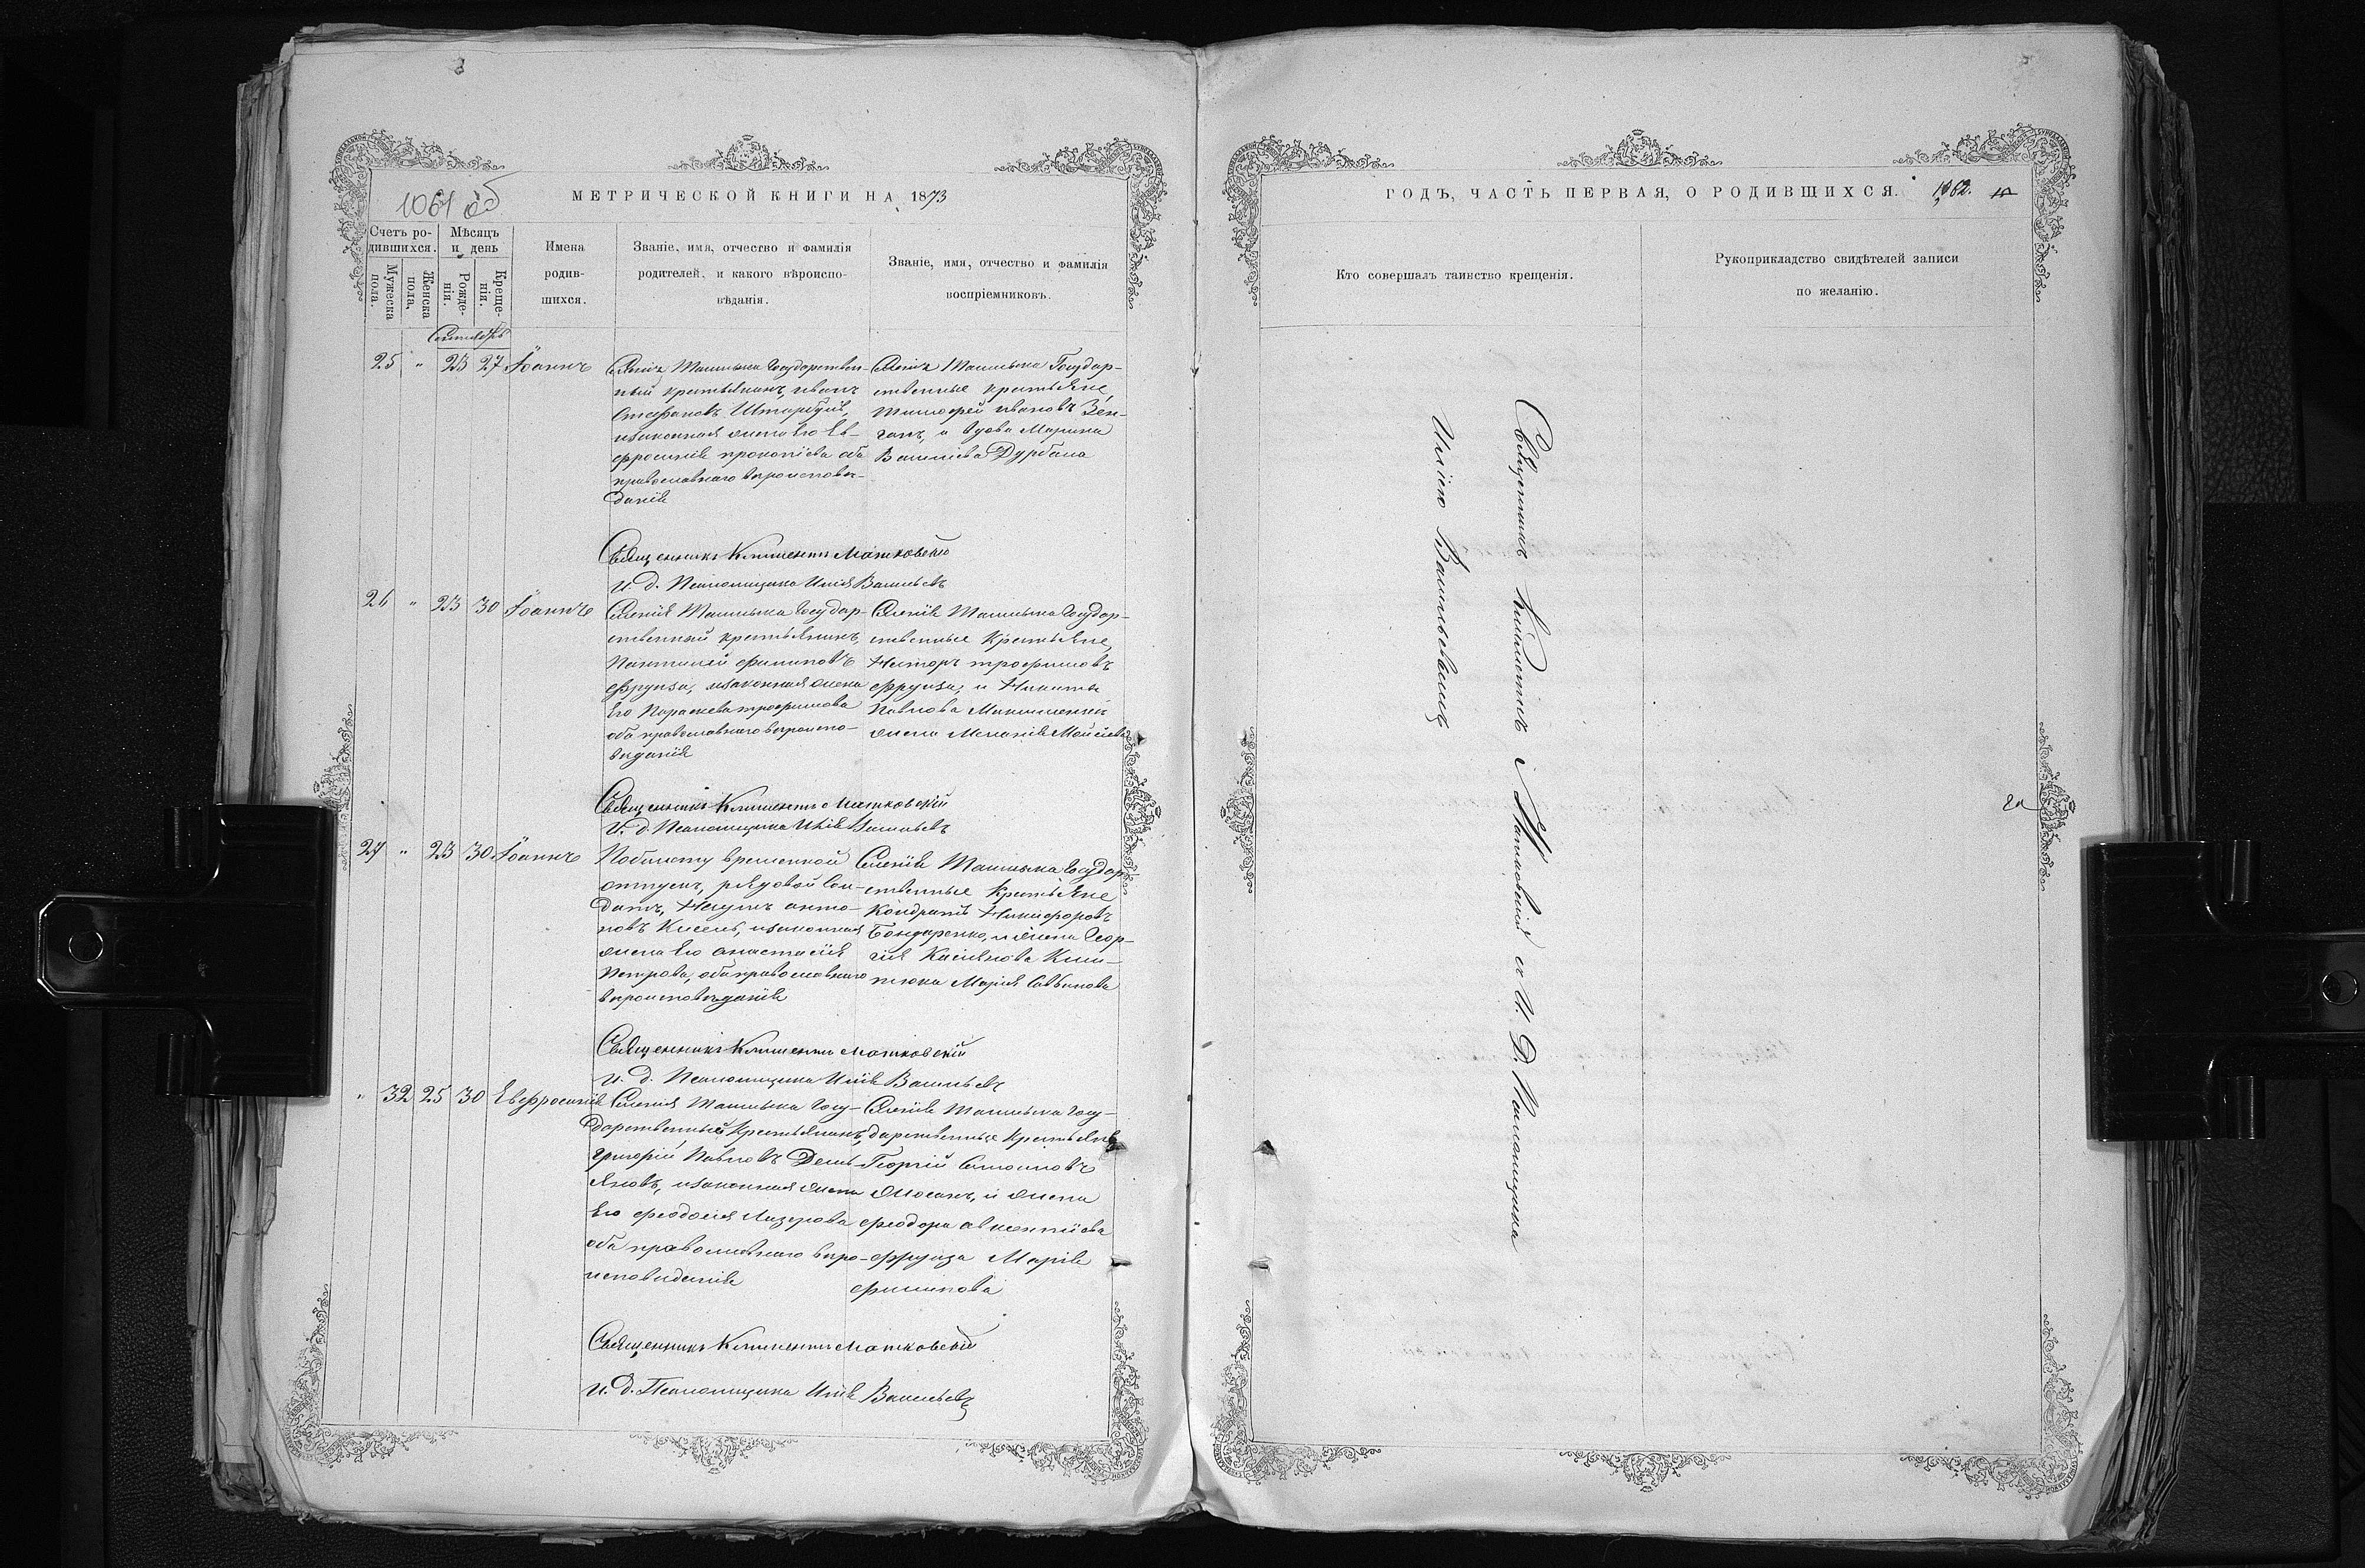 1061 об
МЕТРИЧЕСКОЙ КНИГИ НА 1873
Счетъ родившихся.
Мужеска пола.
Женска пола.
Мѣсяцъ и день
Рожденія.
Крещенія.
Имена родившихся.
Званіе, имя, отчество и фамилія родителей, и какого вѣроисповѣданія.
Званіе, имя, отчество и фамилія воспріемниковъ.
Сентябрь
25 " 23 27 Іоаннъ
Селенія Ташлыка Государствен-
ный крестьянинъ, иванъ
Стефановъ
изаконная жена его Ев-
фросинія прокопіева оба
православнаго вѣроисповѣ-
данія
Селенія Ташлыка Государ-
ственные крестьяне
Тимофей ивановъ
и вдова Марина
Василіева Дурбала
Священникъ Климентъ Матковскій
и. д. Псаломщика Илія Васильевъ
26 " 23 30 Іоаннъ
Селенія Ташлыка Государ-
ственный крестьянинъ,
Пантилей филиповъ
фрунза, изаконная жена
Его Параскева трофимова
оба православнаго вѣроиспо-
вѣданія
Селенія Ташлыка Государ-
ственные Крестьяне,
Несторъ трофимовъ
фрунза, и Никиты
Павлова
жена Меланія Мойсіева
Священникъ Климентъ Матковскій
И. д. Псаломщика Илія Васильевъ
27 " 23 30 Іоаннъ
Побилету временной
отпускъ, рядовой Сол-
датъ, Наумъ анто-
новъ Кисель, изаконная
жена Его анастасія
Петрова, оба православнаго
вѣроисповѣданія
Селенія Ташлыка Государ-
ственные Крестьяне
Кондратъ Никифоровъ
Бондаренко, и жена Геор-
гія Касіянова
Марія Саввинова
Священникъ Климентъ Матковскій
И. д. Псаломщика Илія Васильевъ
" 32 25 30 Евфросинія
Селенія Ташлыка Госу-
дарственный Крестьянинъ,
григорій Павловъ Демь-
яновъ, изаконная жена
Его феодосія Лазарева
оба православнаго вѣро-
исповиданія
Селенія Ташлыка Госу-
дарственные Крестьяне
Георгій Симіоновъ
Жосанъ, и жена
феодора авксентіева
фрунза Марія
филипова
Священникъ Климентъ Матковскій
И. д. Псаломщика Илія Васильевъ
ГОДЪ, ЧАСТЬ ПЕРВАЯ, О РОДИВШИХСЯ. 1062.
Кто совершалъ таинство крещенія.
Рукоприкладство свидѣтелей записи по желанію.
Священникъ Климентъ Матковскій съ И. Д. Псаломщика
Иліею Васильевымъ